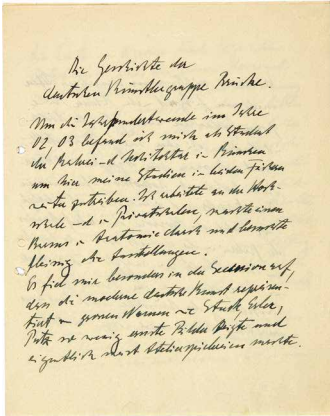 Die Geschichte der
deutschen Künstlergruppe Brücke.
Um die Jahrhundertwende im Jahre
02, 03 befand ich mich als Student
der Malerei und Architektur in München
um hier meine Studien in beiden Fächern
weiter zu treiben. Ich arbeitete an der Hoch-
schule und in Privatschulen, machte einen
Kursus in Anatomie durch und besuchte
fleissig die Ausstellungen.
Es fiel mir besonders in der Secession auf,
dass die moderne deutsche Kunst repräsen-
tiert von grossen Namen wie Stuck, Erler,
Putz so wenig ernste Bilder zeigte und
eigentlich meist Atelierspielereien machte.